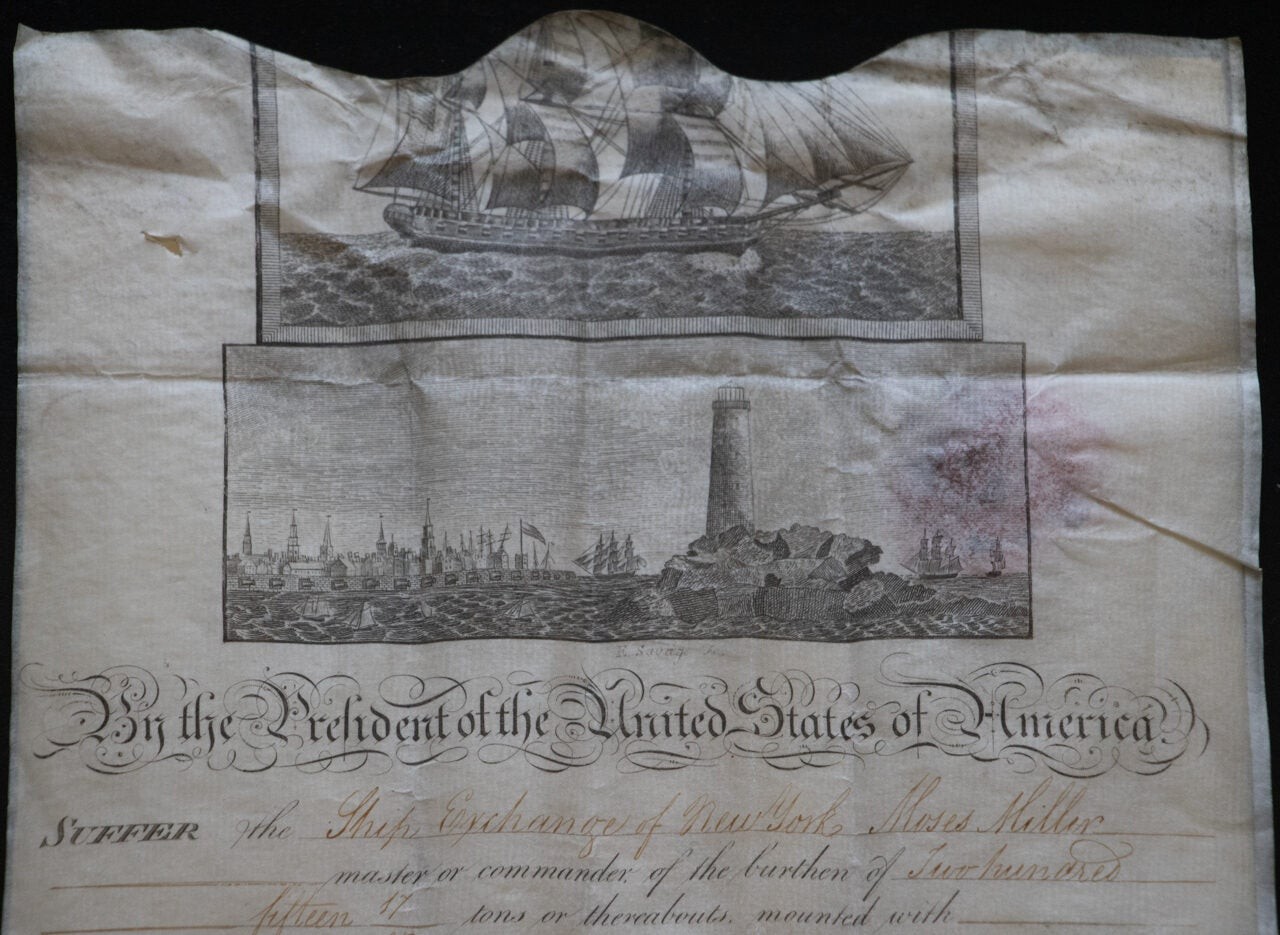 By the President of the United States of America,
SUFFER the Ship Exchange of New York Moses Miller
master or commander of the burthen of Two hundred
fifteen 17 tons or thereabouts, mounted with